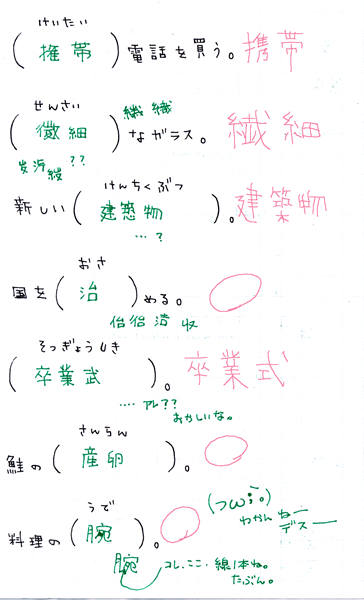 けいたい
(推帯)電話を買う。携帯
せんさい 繊 繊
(微細)なガラス。繊細
??
けんちくぶつ
新しい(建築物)。建築物
…?
おさ
国を(治)める。
収
そつぎょうしき
(卒業武)。卒業式
‥‥アレ??
おかしいな。
さんらん
鮭の(産卵)。
うで
料理の(腕)。
わかんねー
デスー
腕 コレ、ここ、線1本ね。
たぶん。